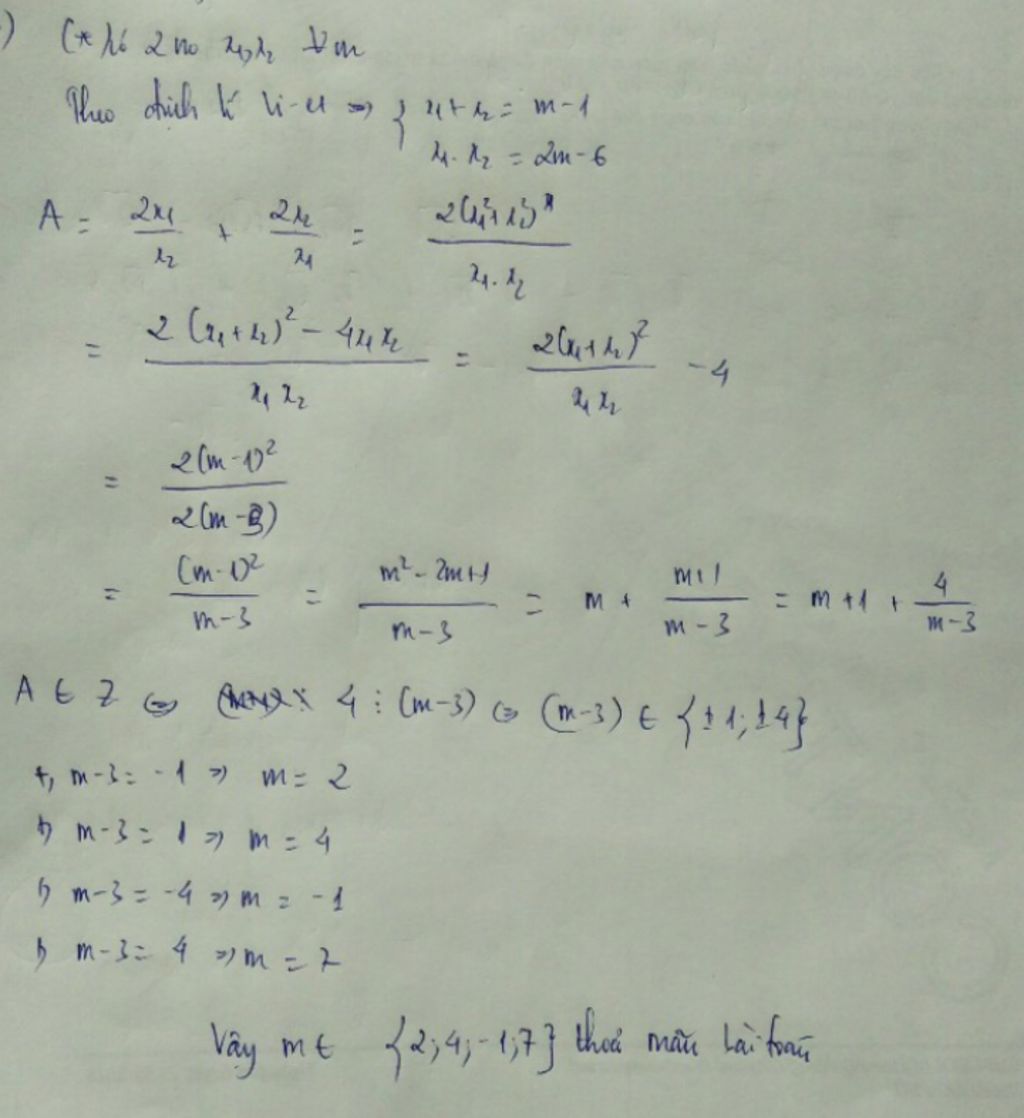 ) (* có 2 no x₁, x₂ ∀m
Theo định lí Vi-et => { x₁ + x₂ = m - 1
x₁ . x₂ = 2m - 6
A = 2x₁/x₂ + 2x₂/x₁ = 2(x₁² + x₂²)/x₁ . x₂
= (2(x₁ + x₂)² - 4x₁x₂)/x₁x₂ = 2(x₁ + x₂)²/x₁x₂ - 4
= 2(m - 1)²/2(m - 3)
= (m - 1)²/(m - 3) = (m² - 2m + 1)/(m - 3) = m + (m + 1)/(m - 3) = m + 1 + 4/(m - 3)
A ∈ Z <=> 4 ⋮ (m - 3) <=> (m - 3) ∈ {±1; ±4}
+, m - 3 = -1 => m = 2
+) m - 3 = 1 => m = 4
+) m - 3 = -4 => m = -1
+) m - 3 = 4 => m = 7
Vậy m ∈ {2; 4; -1; 7} thoả mãn bài toán